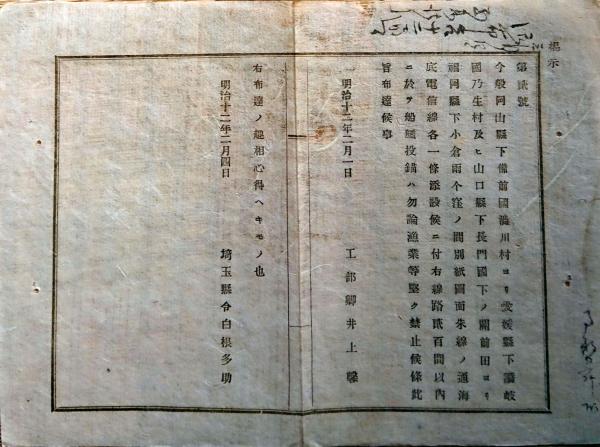 掲示
第貳號
今般岡山縣下備前國澁川村ヨリ愛媛縣下讃岐
國乃生村及ヒ山口縣下長門國下ノ關前田ヨリ
福岡縣下小倉雨个窪ノ間別紙圖面朱線ノ通海
底電信線各一條添設候ニ付右線路貳百間以內
ニ於テ船艦投錨ハ勿論漁業等堅ク禁止候條此
旨布達候事
一明治十二年二月一日
工部卿井上馨
右布達ノ趣相心得ヘキモノ也
明治十二年二月四日
埼玉縣令白根多助